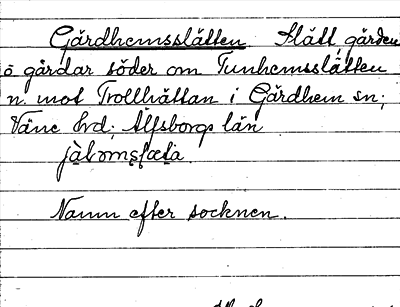 Gärdhemsslätten Slätt, gården
o gårdar söder om Tunhemsslätten
n. mot Trollhättan i Gärdhem sn;
Väne hrd; Älfsborgs län
Namn efter socknen.